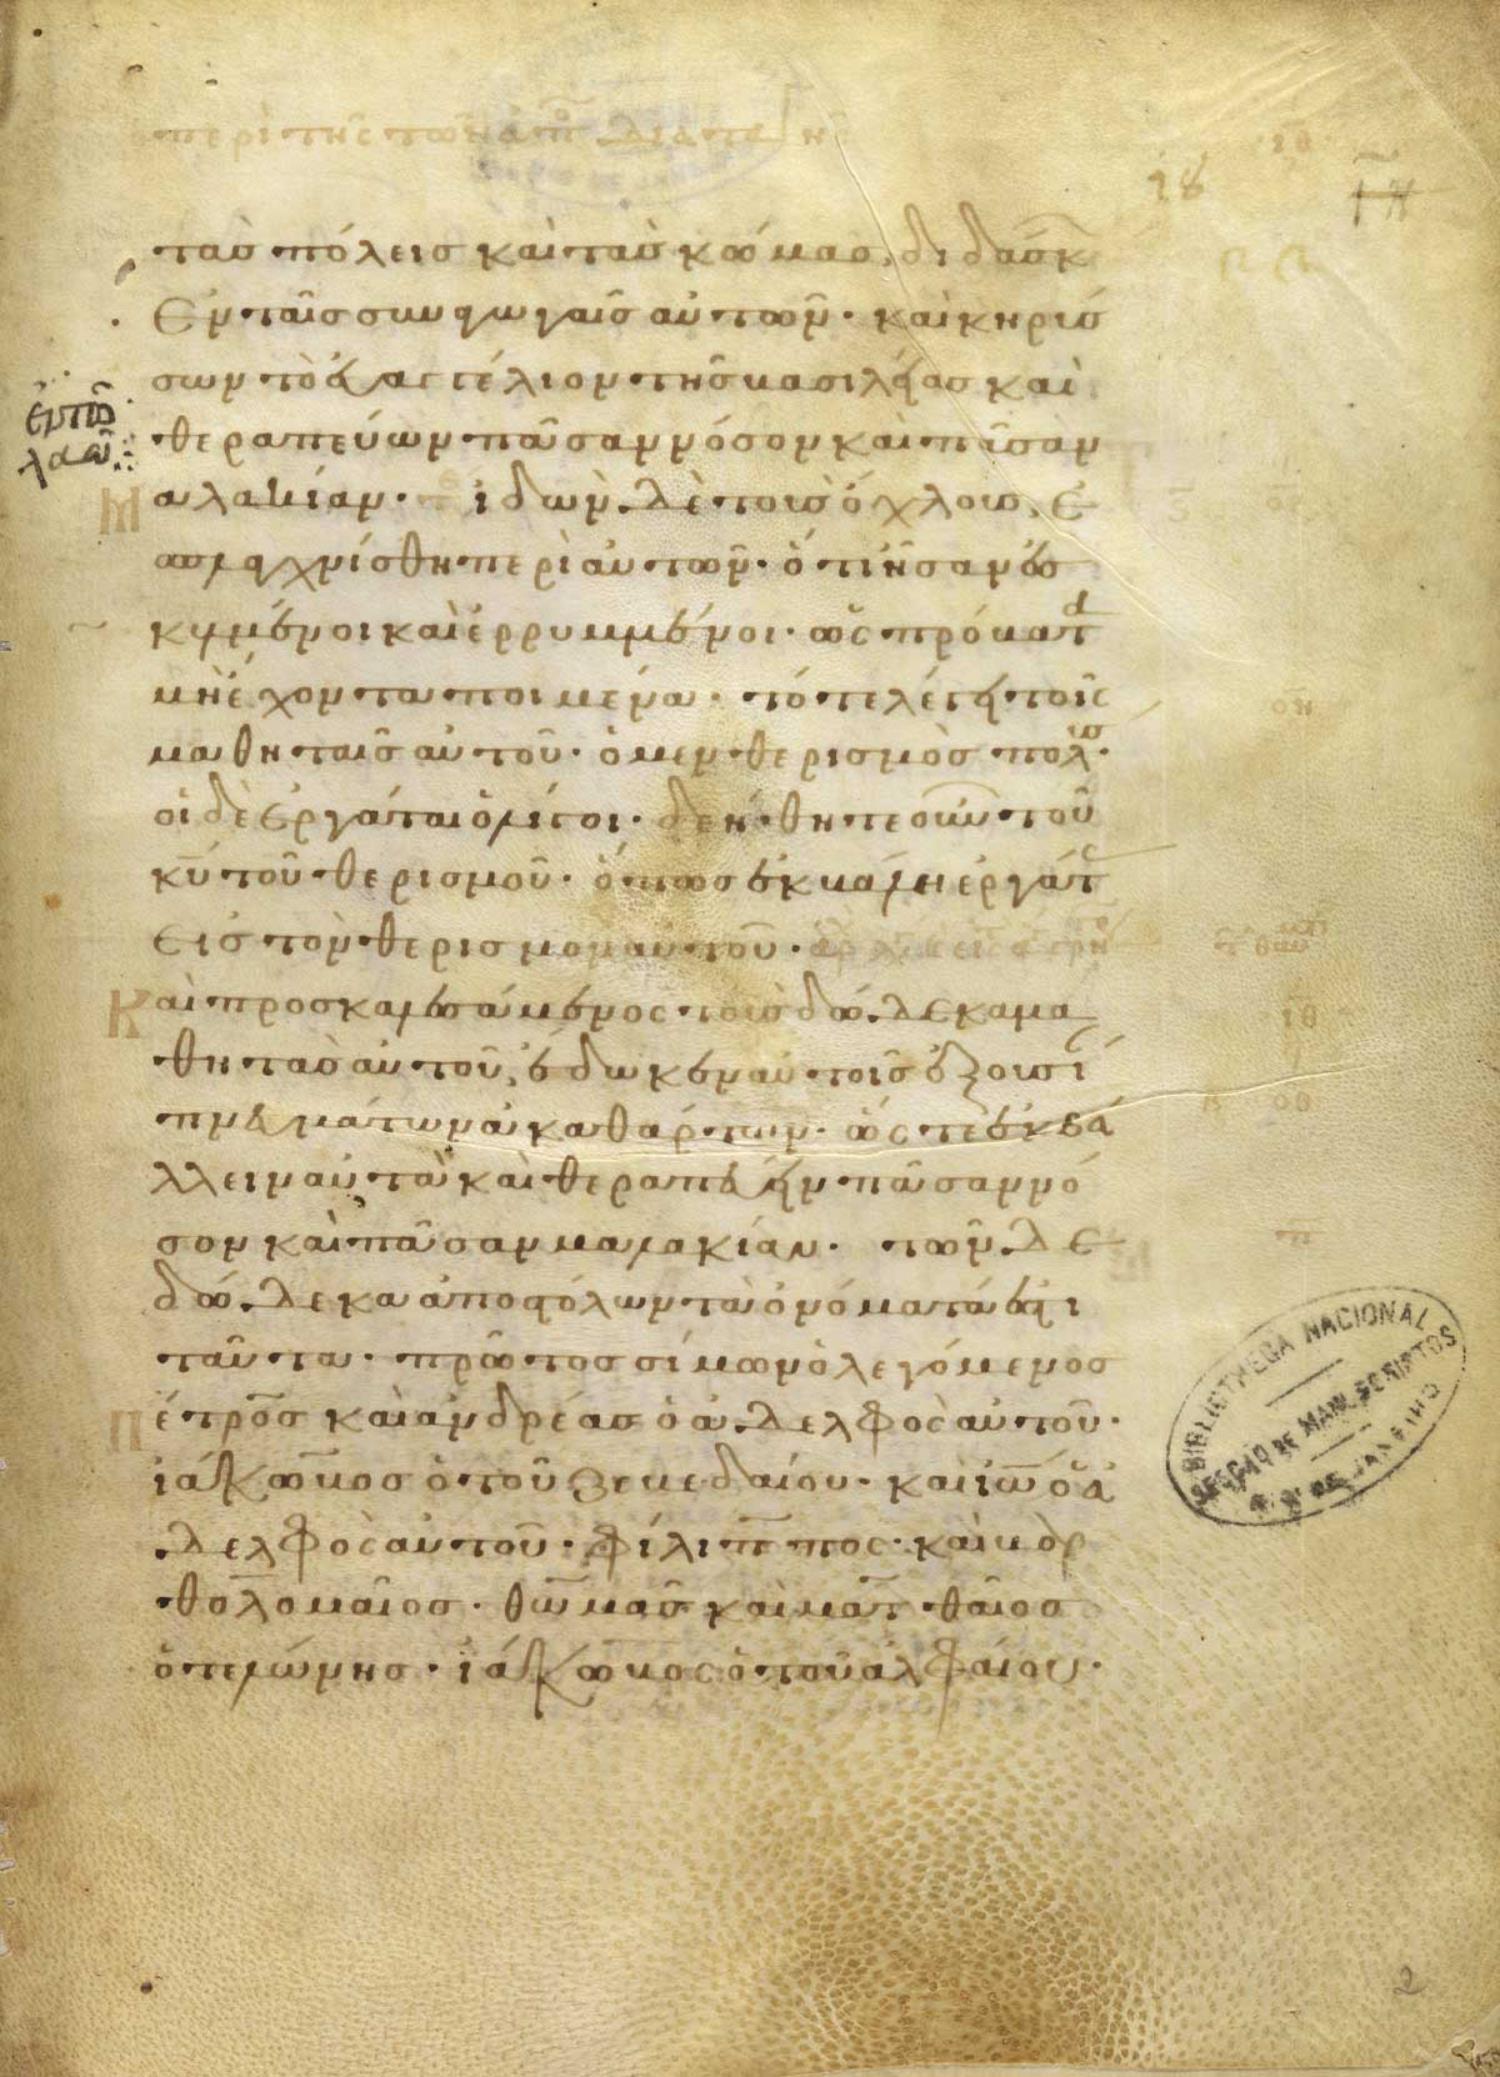 περὶ τῆς τῶν ἀπο διαταγῆς
18
τὰς πόλεις καὶ τὰς κώμας, διδάσκ
ἐν ταῖς συναγωγαῖς αὐτῶν· καὶ κηρύσ
σων τὸ εὐαγγέλιον τῆς βασιλείας καὶ
ἐν τῶ
λαῶ
θεραπεύων πᾶσαν νόσον καὶ πᾶσαν
μαλακίαν· ἰδὼν δὲ τοὺς ὄχλους, ἐ
σπλαγχνίσθη περὶ αὐτῶν· ὅτι ἦσαν ἐσ
κυλμένοι καὶ ἐρριμμένοι· ὡς πρόβατ
μὴ ἔχοντα ποιμένα· τότε λέγει τοῖς
μαθηταῖς αὐτοῦ· ὁ μεν θερισμὸς πολυς·
οἱ δὲ ἐργάται ὀλίγοι· δεήθητε οὖν τοῦ
κυ τοῦ θερισμοῦ· ὅπως ἐκβάλη ἐργάτ
εἰς τὸν θερισμον αυτοῦ·
Καὶ προσκαλεσάμενος τοὺς δώδεκα μα
θητὰς αὐτοῦ, ἔδωκεν αὐτοῖς ἐξουσί
πνευμάτων ἀκαθάρτων· ὥστε ἐκβά
λλειν αὐτὰ καὶ θεραπεύειν πᾶσαν νό
σον καὶ πᾶσαν μαλακίαν· τῶν δὲ
δώδεκα ἀποστόλων τὰ ὀνόματά ἐστι
ταῦτα· πρῶτος σίμων ὁ λεγόμενος
Πέτρος καὶ ἀνδρέας ὁ ἀδελφὸς αὐτοῦ·
ἰάκωβος ὁ τοῦ ζεβεδαίου· καὶ ἰω ὁ ἀ
δελφὸς αὐτοῦ· φίλιππος· καὶ βὰρ
θολομαῖος· θωμᾶς καὶ ματθαῖος
ὁ τελώνης· ἰάκωβος ὁ τοῦ ἀλφαίου·
BIBLIOTHECA NACIONAL
SECÇÃO DE MANUSCRIPTOS
RIO DE JANEIRO
2